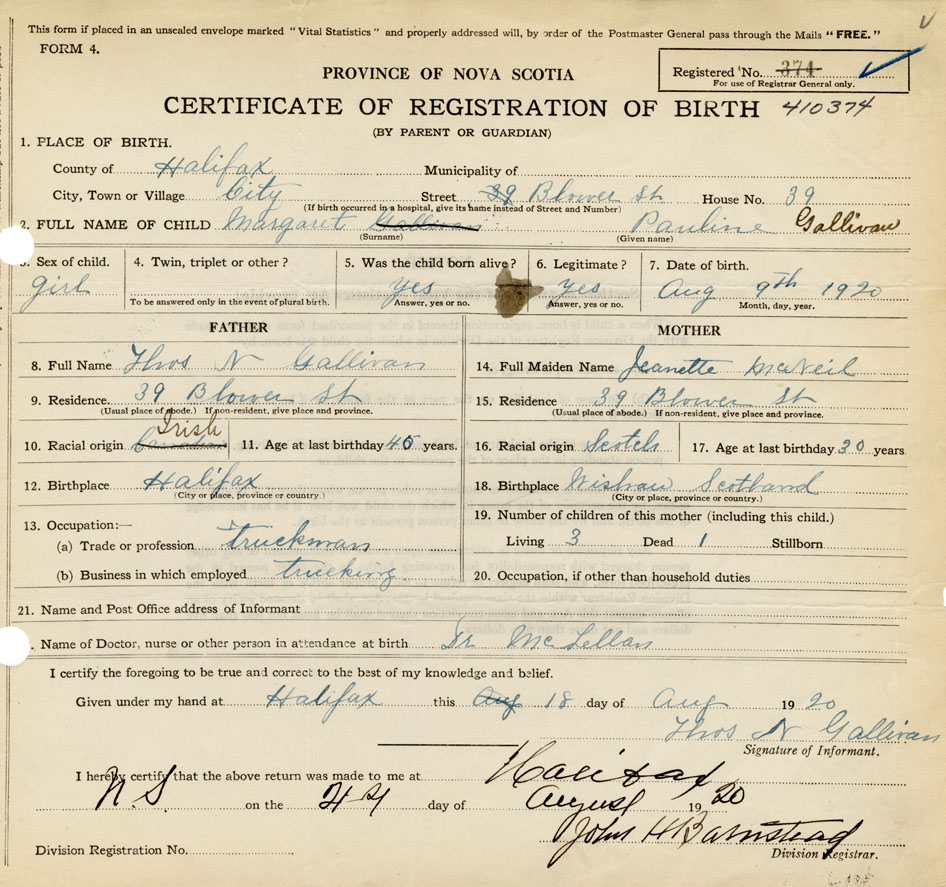 This form if placed in an unsealed envelope marked "Vital Statistics" and properly addressed will, by order of the Postmaster General pass through the Mails "FREE."
FORM 4.
Registered No. 374
For use of Registrar General only.
PROVINCE OF NOVA SCOTIA
CERTIFICATE OF REGISTRATION OF BIRTH 410374
(BY PARENT OR GUARDIAN)
1. PLACE OF BIRTH.
County of Halifax Municipality of
City, Town or Village City Street 39 Blower St House No. 39
(If birth occurred in a hospital, give its name instead of Street and Number)
2. FULL NAME OF CHILD Margaret Gallivan Pauline Gallivan
(Surname) (Given name)
3. Sex of child. 4. Twin, triplet or other ? 5. Was the child born alive ? 6. Legitimate ? 7. Date of birth.
girl yes yes Aug 9th 1920
To be answered only in the event of plural birth. Answer, yes or no. Answer, yes or no. Month, day, year.
FATHER MOTHER
8. Full Name Thos N Gallivan 14. Full Maiden Name Jeanette McNeil
9. Residence. 39 Blower St 15. Residence 39 Blower St
(Usual place of abode.) If non-resident, give place and province. (Usual place of abode.) If non-resident, give place and province.
10. Racial origin Canadian Irish 11. Age at last birthday 40 years. 16. Racial origin Scotch 17. Age at last birthday 30 years
12. Birthplace Halifax 18. Birthplace Wishaw Scotland
(City or place, province or country.) (City or place, province or country.)
13. Occupation:— 19. Number of children of this mother (including this child.)
(a) Trade or profession truckman Living 3 Dead 1 Stillborn
(b) Business in which employed trucking 20. Occupation, if other than household duties
21. Name and Post Office address of Informant
. Name of Doctor, nurse or other person in attendance at birth Dr. McLellan
I certify the foregoing to be true and correct to the best of my knowledge and belief.
Given under my hand at Halifax this Aug 18 day of Aug 1920
Thos N Gallivan
Signature of Informant.
I hereby certify that the above return was made to me at Halifax
N S on the day of August 1920
John H Barnstead
Division Registrar.
Division Registration No.